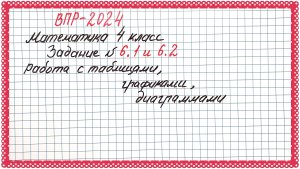 ВПР-2024,
Математика 4 класс
Задание № 6.1 и 6.2
Работа с таблицами,
графиками,
диаграммами